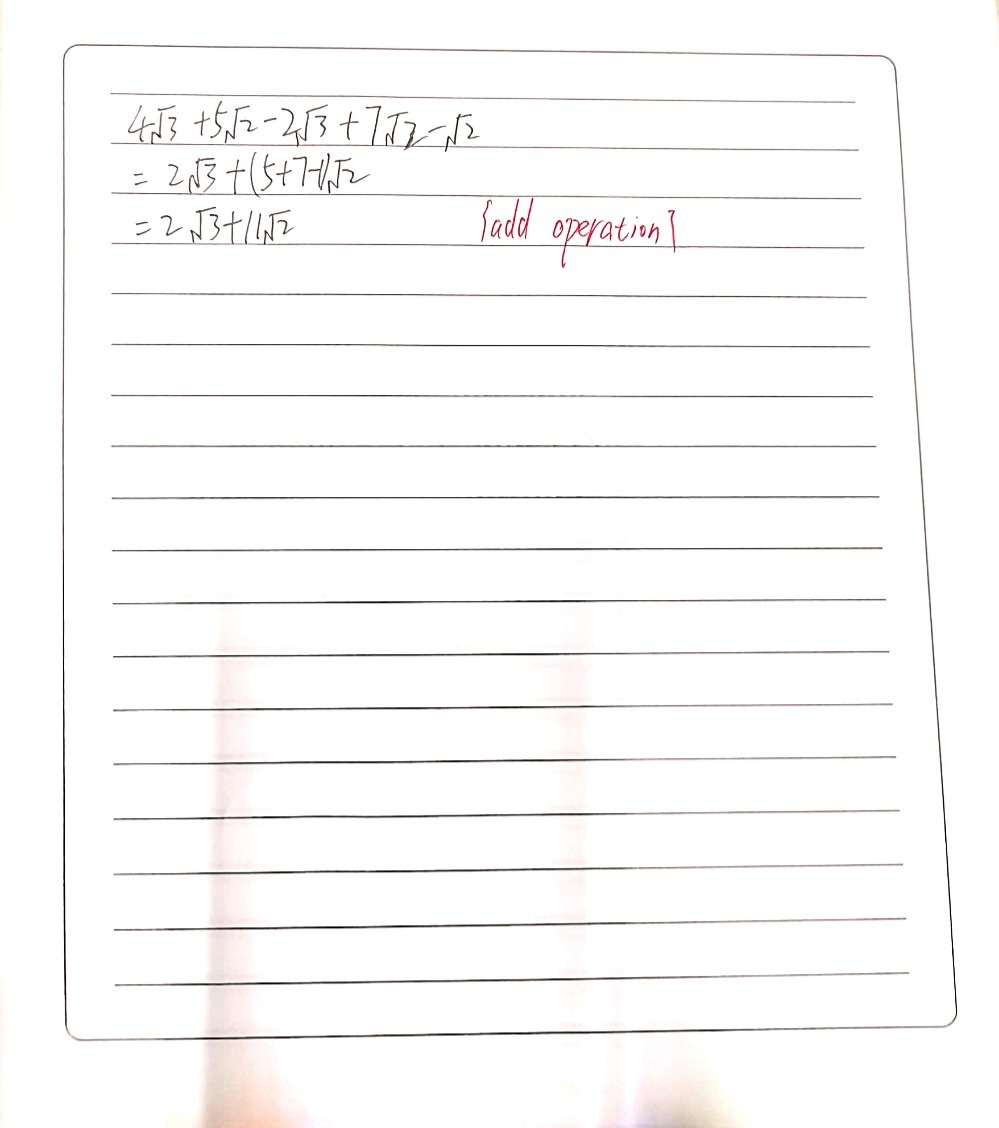 4√3 + 5√2 - 2√3 + 7√2 - √2
= 2√3 + (5+7-1)√2
= 2√3 + 11√2 {add operation}